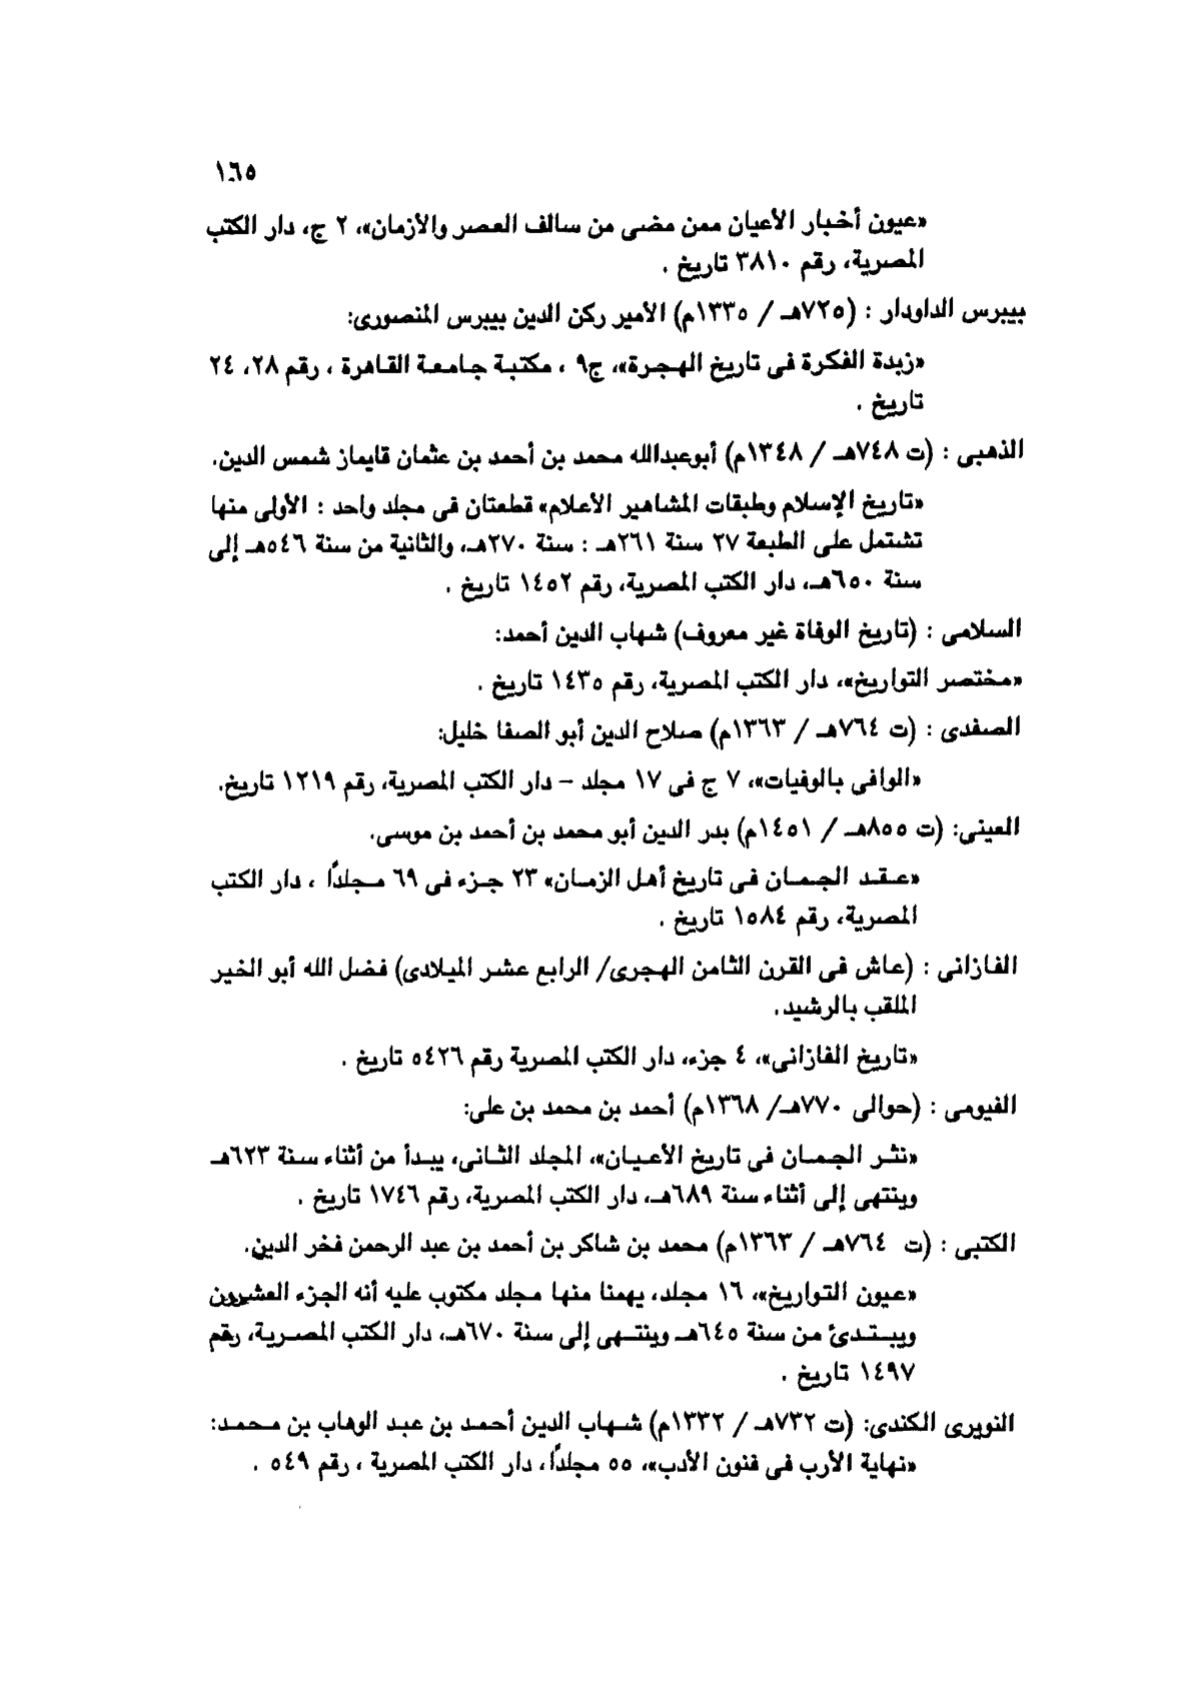 ١٦٥
«عيون أخبار الأعيان ممن مضى من سالف العصر والأزمان»، ٢ ج، دار الكتب
المصرية، رقم ٣٨١٠ تاريخ .
بيبرس الداودار : (٧٢٥هـ / ١٣٣٥م) الأمير ركن الدين بيبرس المنصورى:
«زبدة الفكرة فى تاريخ الهجرة»، ج٩ ، مكتبة جامعة القاهرة ، رقم ٢٨، ٢٤
تاريخ .
الذهبى : (ت ٧٤٨هـ / ١٣٤٨م) أبوعبدالله محمد بن أحمد بن عثمان قايماز شمس الدين.
«تاريخ الإسلام وطبقات المشاهير الأعلام» قطعتان فى مجلد واحد : الأولى منها
تشتمل على الطبعة ٢٧ سنة ٢٦١هـ : سنة ٢٧٠هـ، والثانية من سنة ٥٤٦هـ إلى
سنة ٦٥٠هـ، دار الكتب المصرية، رقم ١٤٥٢ تاريخ .
السلامى : (تاريخ الوفاة غير معروف) شهاب الدين أحمد:
«مختصر التواريخ»، دار الكتب المصرية، رقم ١٤٣٥ تاريخ .
الصفدى : (ت ٧٦٤هـ / ١٣٦٣م) صلاح الدين أبو الصفا خليل:
«الوافي بالوفيات»، ٧ ج فى ١٧ مجلد – دار الكتب المصرية، رقم ١٢١٩ تاريخ.
العينى: (ت ٨٥٥هـ / ١٤٥١م) بدر الدين أبو محمد بن أحمد بن موسى.
«عقد الجمان فى تاريخ أهل الزمان» ٢٣ جزء فى ٦٩ مجلدًا ، دار الكتب
المصرية، رقم ١٥٨٤ تاريخ .
الفازانى : (عاش فى القرن الثامن الهجرى/ الرابع عشر الميلادى) فضل الله أبو الخير
الملقب بالرشيد.
«تاريخ الفازانى»، ٤ جزء، دار الكتب المصرية رقم ٥٤٢٦ تاريخ .
الفيومى : (حوالى ٧٧٠هـ/ ١٣٦٨م) أحمد بن محمد بن على:
«نثر الجمان فى تاريخ الأعيان»، المجلد الثانى، يبدأ من أثناء سنة ٦٢٣هـ
وينتهى إلى أثناء سنة ٦٨٩هـ، دار الكتب المصرية، رقم ١٧٤٦ تاريخ .
الكتبى : (ت ٧٦٤هـ / ١٣٦٣م) محمد بن شاكر بن أحمد بن عبد الرحمن فخر الدين.
«عيون التواريخ»، ١٦ مجلد، يهمنا منها مجلد مكتوب عليه أنه الجزء العشرون
ويبتدئ من سنة ٦٤٥هـ وينتهى إلى سنة ٦٧٠هـ، دار الكتب المصرية، رقم
١٤٩٧ تاريخ .
النويرى الكندى: (ت ٧٣٢هـ / ١٣٣٢م) شهاب الدين أحمد بن عبد الوهاب بن محمد:
«نهاية الأرب فى فنون الأدب»، ٥٥ مجلدًا، دار الكتب المصرية ، رقم ٥٤٩ .